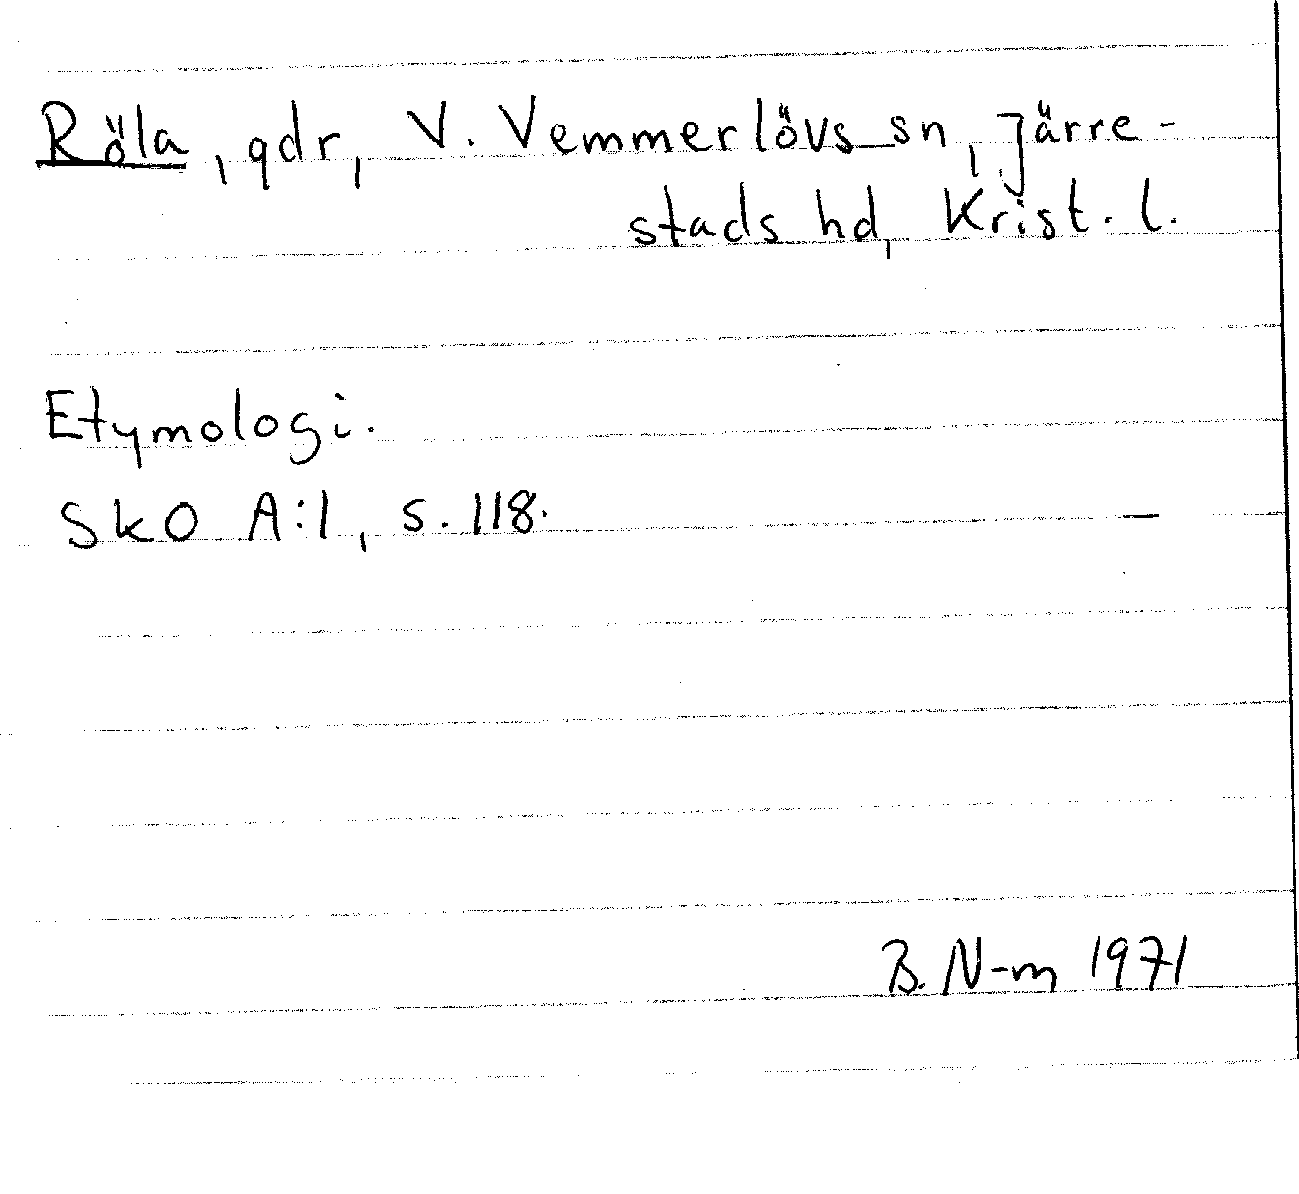 Röla, gdr, V. Vemmerlövs sn, Järre-
stads hd, Krist. l.
Etymologi.
SkO A:1, s. 118. —
B. N-m 1971